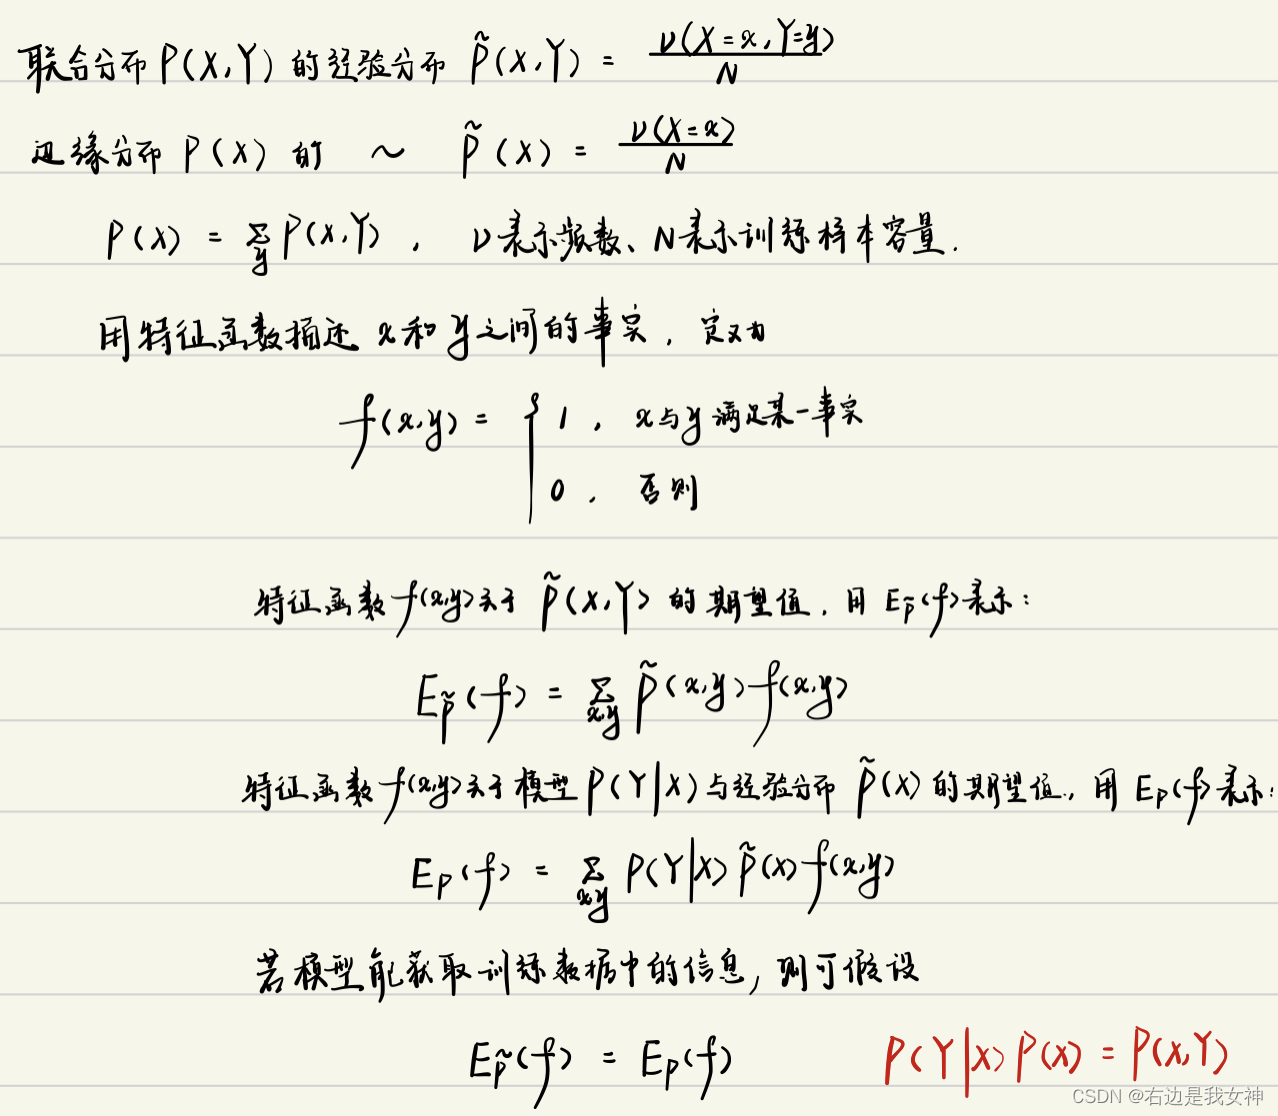 联合分布 P(X,Y) 的经验分布 P̃(X,Y) = ν(X=x,Y=y) / N
边缘分布 P(X) 的 ~ P̃(X) = ν(X=x) / N
P(X) = Σ_y P(X,Y) , ν表示频数、N表示训练样本容量.
用特征函数描述 x和 y之间的事实, 定义为
f(x,y) = { 1 , x与y满足某一事实
0 , 否则
特征函数 f(x,y)关于 P̃(X,Y) 的期望值, 用 E_P̃(f)表示:
E_P̃(f) = Σ_{x,y} P̃(x,y) f(x,y)
特征函数 f(x,y)关于模型 P(Y|X)与经验分布 P̃(X) 的期望值, 用 E_P(f)表示:
E_P(f) = Σ_{x,y} P(Y|X) P̃(X) f(x,y)
若模型能获取训练数据中的信息, 则可假设
E_P̃(f) = E_P(f) P(Y|X) P(X) = P(X,Y)
CSDN @右边是我女神